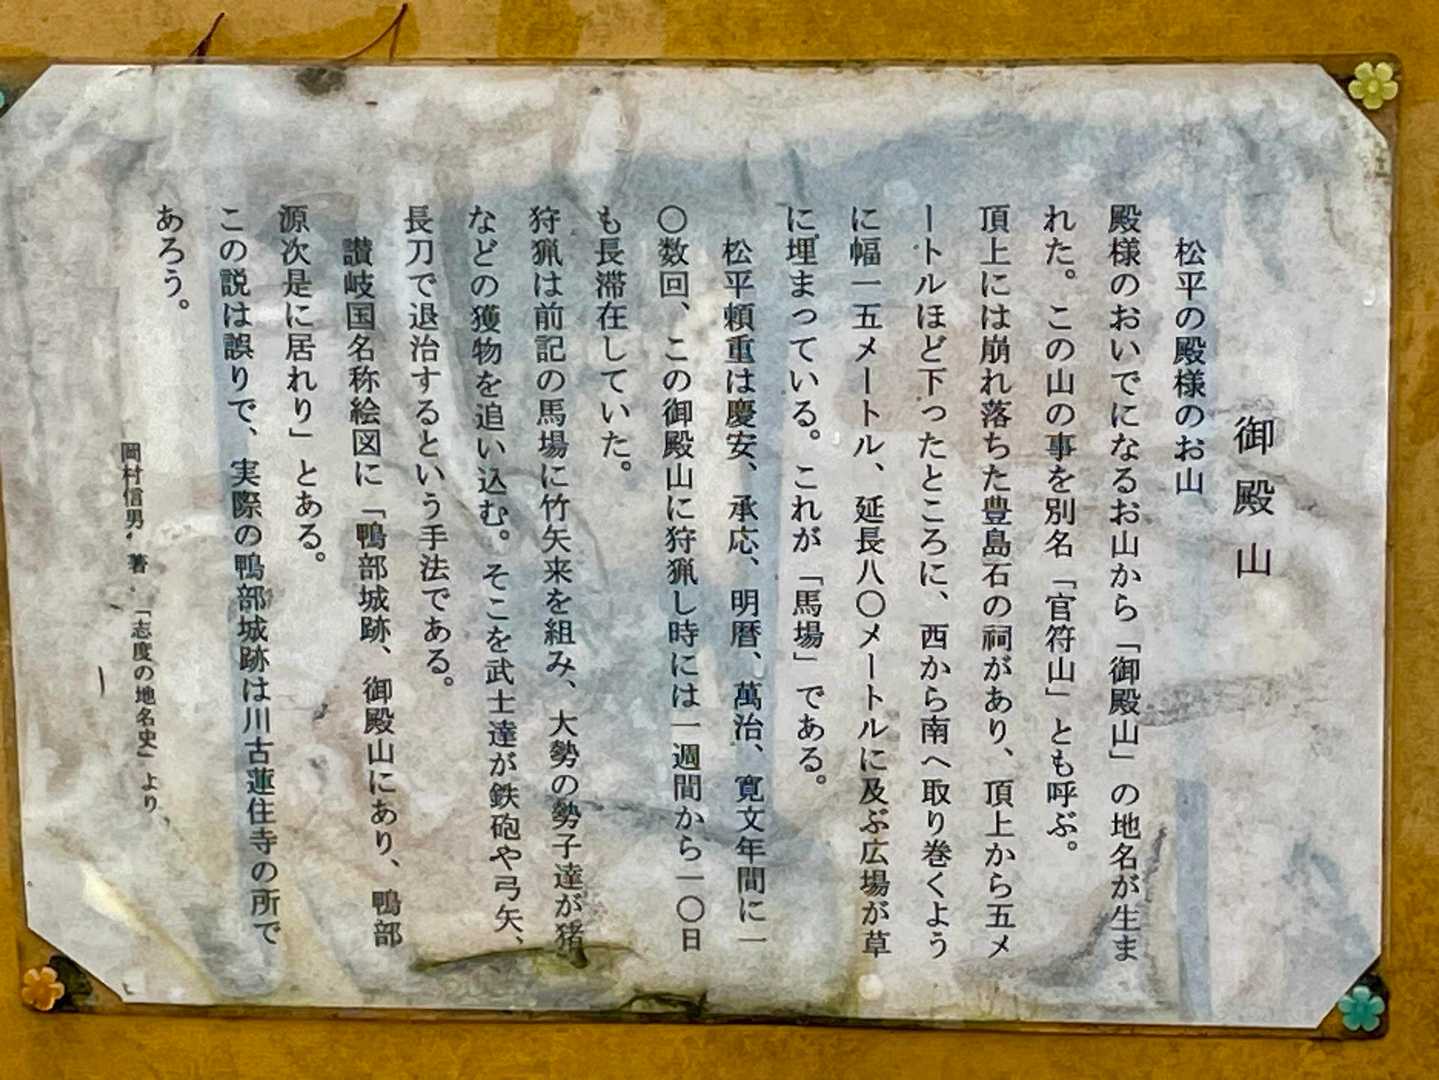 御殿山
松平の殿様のお山
殿様のおいでになるお山から「御殿山」の地名が生ま
れた。この山の事を別名「官符山」とも呼ぶ。
頂上には崩れ落ちた豊島石の祠があり、頂上から五メ
ートルほど下ったところに、西から南へ取り巻くよう
に幅一五メートル、延長八〇メートルに及ぶ広場が草
に埋まっている。これが「馬場」である。
松平頼重は慶安、承応、明暦、萬治、寛文年間に一
〇数回、この御殿山に狩猟し時には一週間から一〇日
も長滞在していた。
狩猟は前記の馬場に竹矢来を組み、大勢の勢子達が猪
などの獲物を追い込む。そこを武士達が鉄砲や弓矢、
長刀で退治するという手法である。
讃岐国名称絵図に「鴨部城跡、御殿山にあり、鴨部
源次是に居れり」とある。
この説は誤りで、実際の鴨部城跡は川古蓮住寺の所で
あろう。
岡村信男 著 「志度の地名史」より